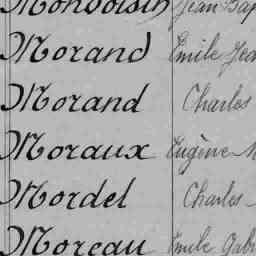 Monvoisin Jean Bap
Morand Emile Jea
Morand Charles
Moraux Eugène
Mordel Charles
Moreau Emile Gab